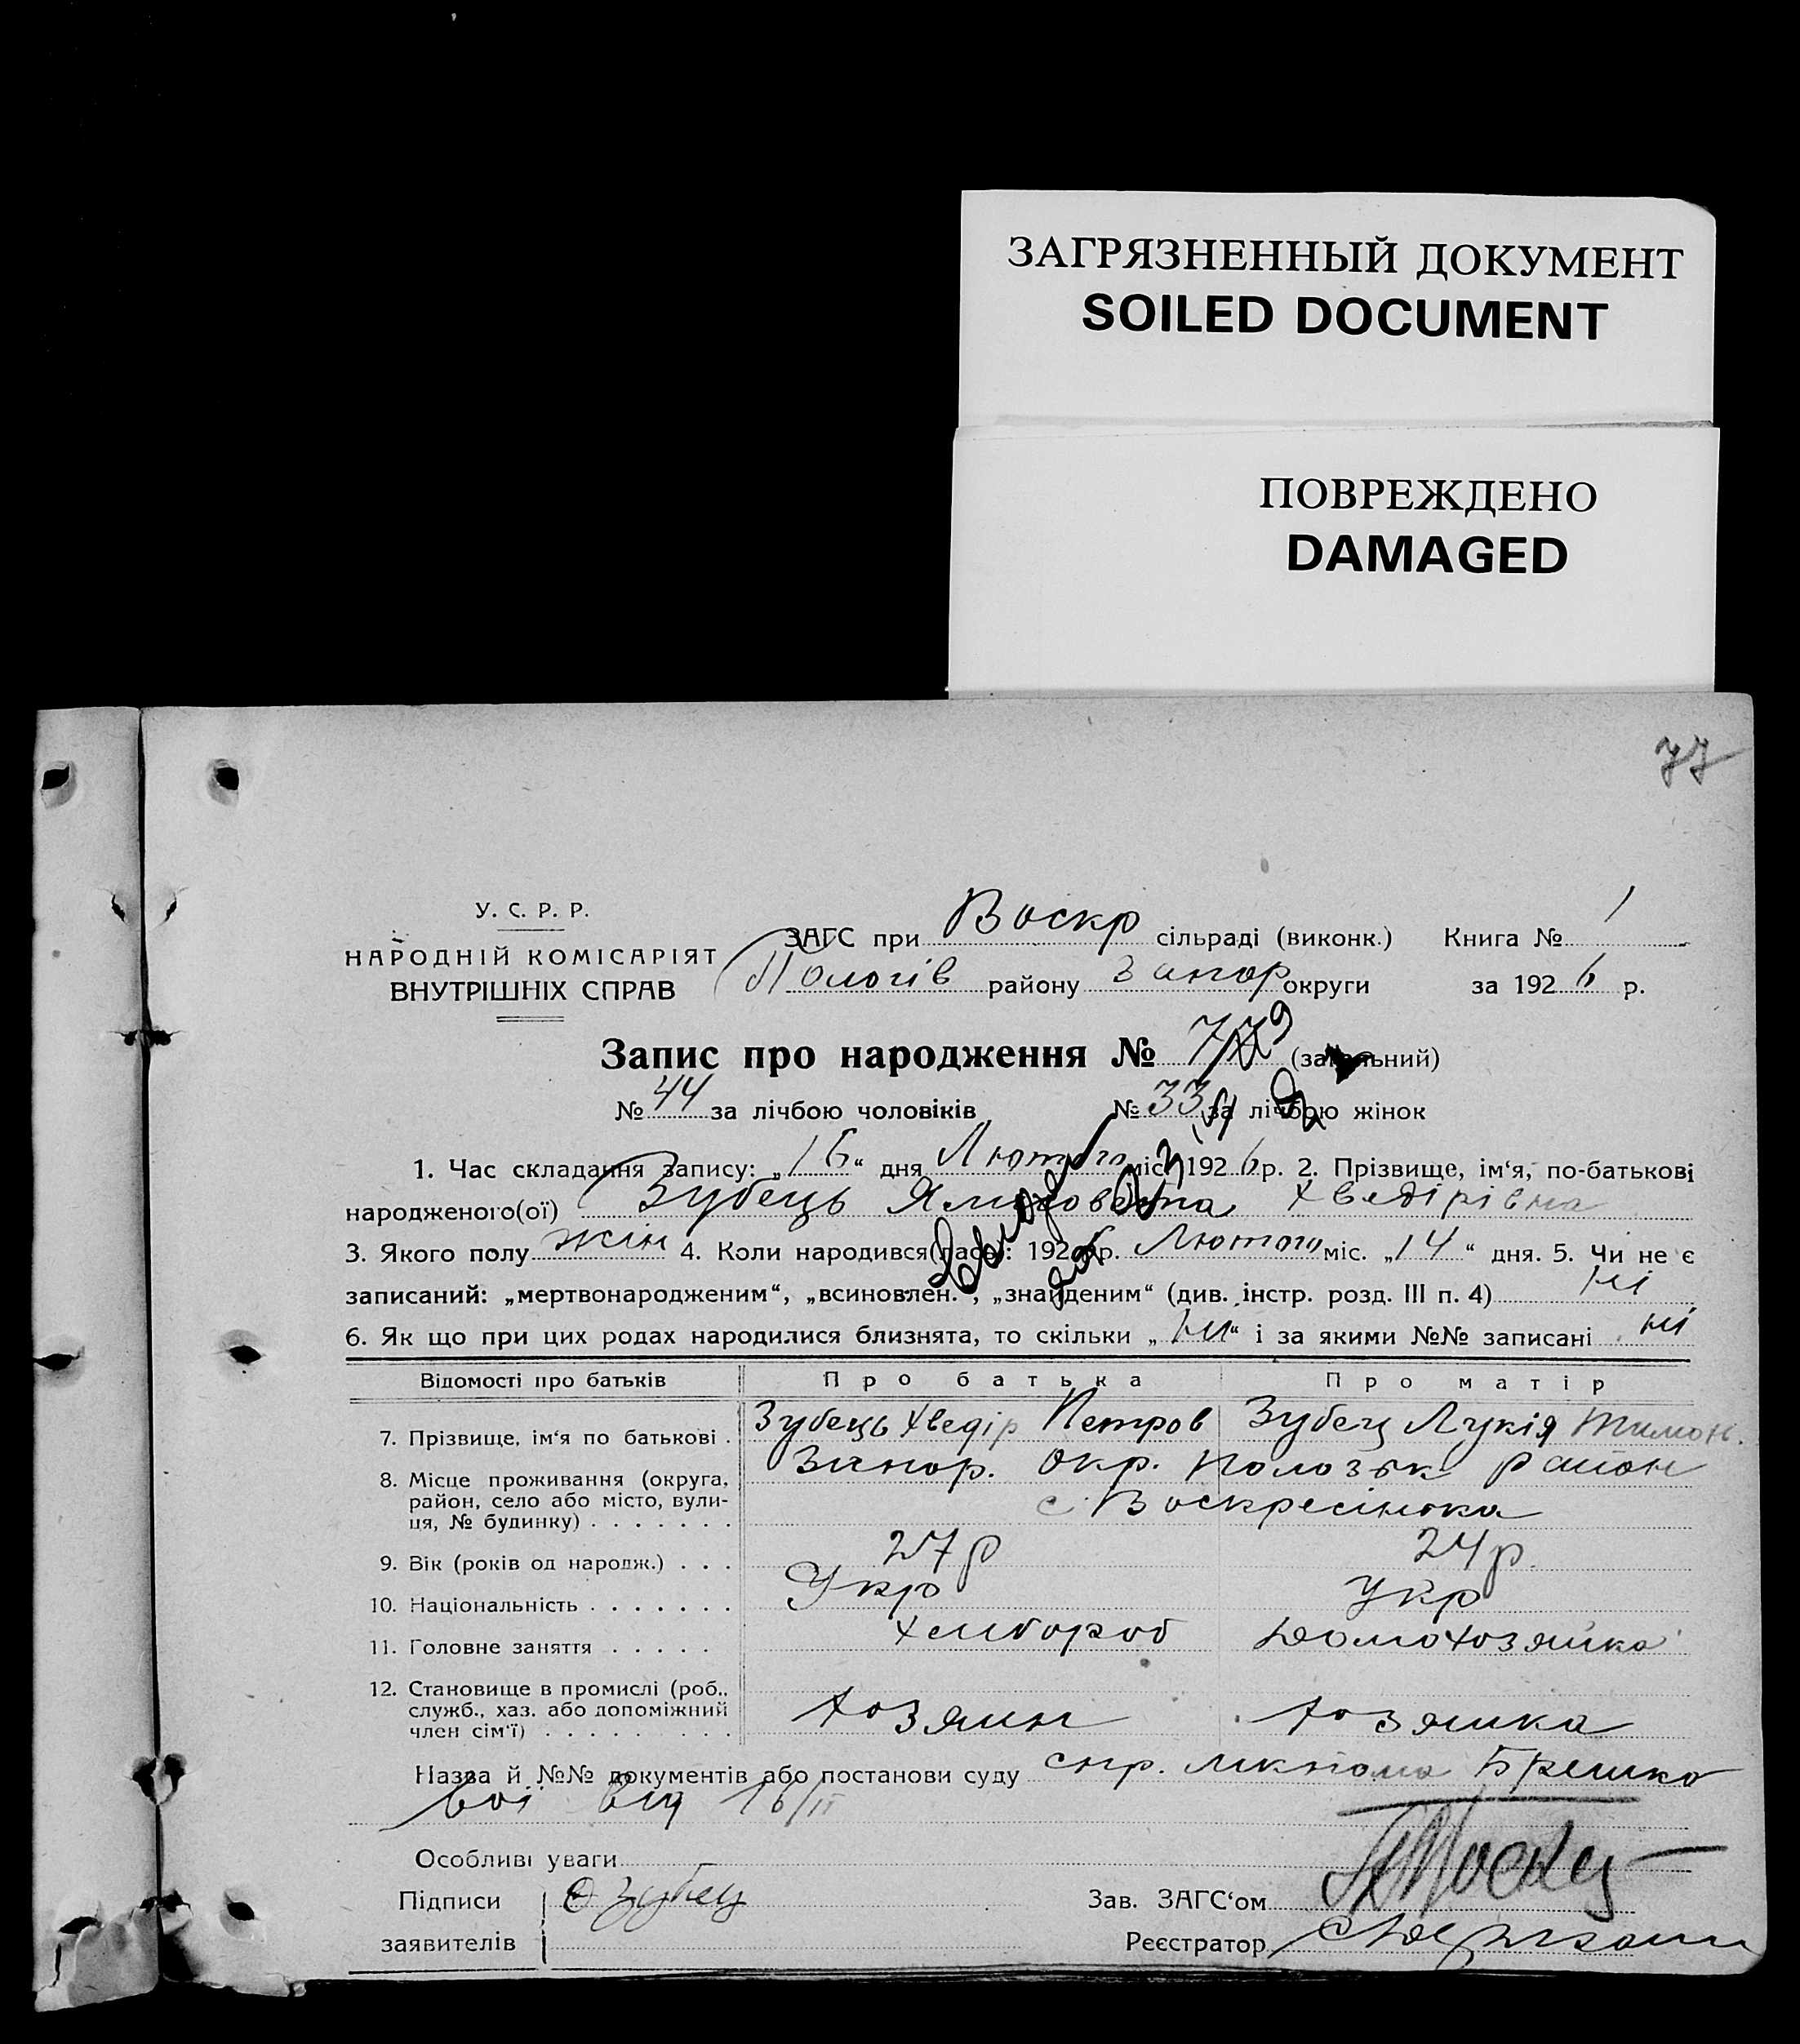 ЗАГРЯЗНЕННЫЙ ДОКУМЕНТ
SOILED DOCUMENT
ПОВРЕЖДЕНО
DAMAGED
77
У. С. Р. Р.
НАРОДНІЙ КОМІСАРІЯТ
ВНУТРІШНІХ СПРАВ
ЗАГС при Воскр сільраді (виконк.) Книга № 1
Пологів району Запор округи за 1926 р.
Запис про народження № 77 (загальний)
№ 44 за лічбою чоловіків № 33 за лічбою жінок
1. Час складання запису: „16“ дня Лютого міс. 1926 р. 2. Прізвище, ім‘я, по-батькові
народженого(ої) Зубець Хведірівна
3. Якого полу жін 4. Коли народився(лась): 1926 р. Лютого міс. „14“ дня. 5. Чи не є
записаний: „мертвонародженим“, „всиновлен.“, „знайденим“ (див. інстр. розд. III п. 4) ні
6. Як що при цих родах народилися близнята, то скільки „ні“ і за якими №№ записані ні
Відомості про батьків Про батька Про матір
7. Прізвище, ім‘я по батькові . Зубець Хведір Петров Зубец Лукія Тимон.
8. Місце проживання (округа, Запор. Окр. Пологськ район
район, село або місто, вули- с. Воскресінька
ця, № будинку) . . . . . . .
9. Вік (років од народж.) . . . 27 р 24 р.
10. Національність . . . . . . . Укр Укр
11. Головне заняття . . . . . Хлибороб Домохозяйка
12. Становище в промислі (роб.,
служб., хаз. або допоміжний Хозяин Хозяйка
член сім‘ї) . . . . . . . .
Назва й №№ документів або постанови суду спр. Брешко
вої від 16/II
Особливі уваги
Підписи Зубец Зав. ЗАГС‘ом
заявителів Реєстратор